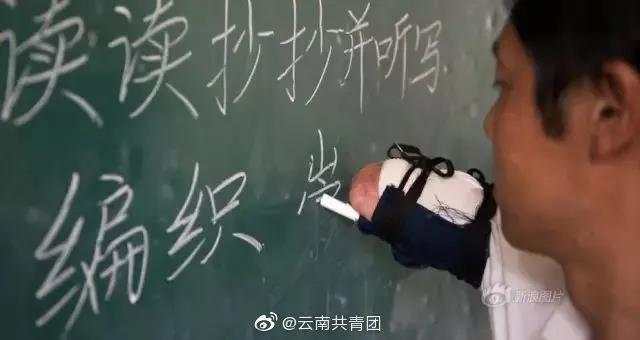 读读抄抄拼听写
编织
新浪图片
@云南共青团